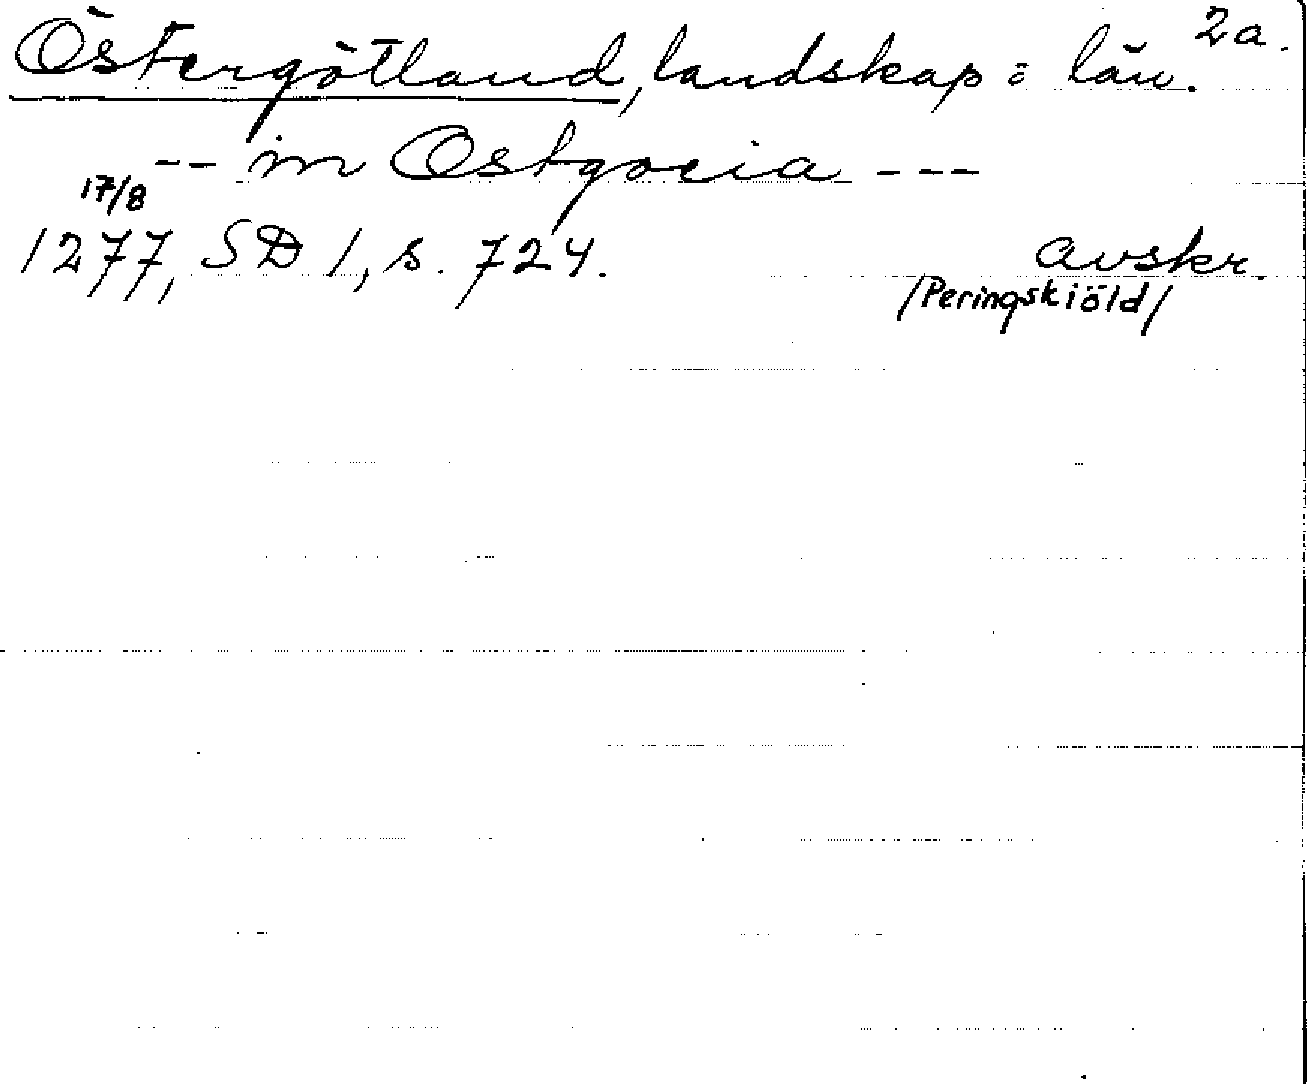 2a.
Östergötland, landskap = län.
-- in Ostgocia ---
17/8
1277, SD 1, s. 724. avskr.
/Peringskiöld/